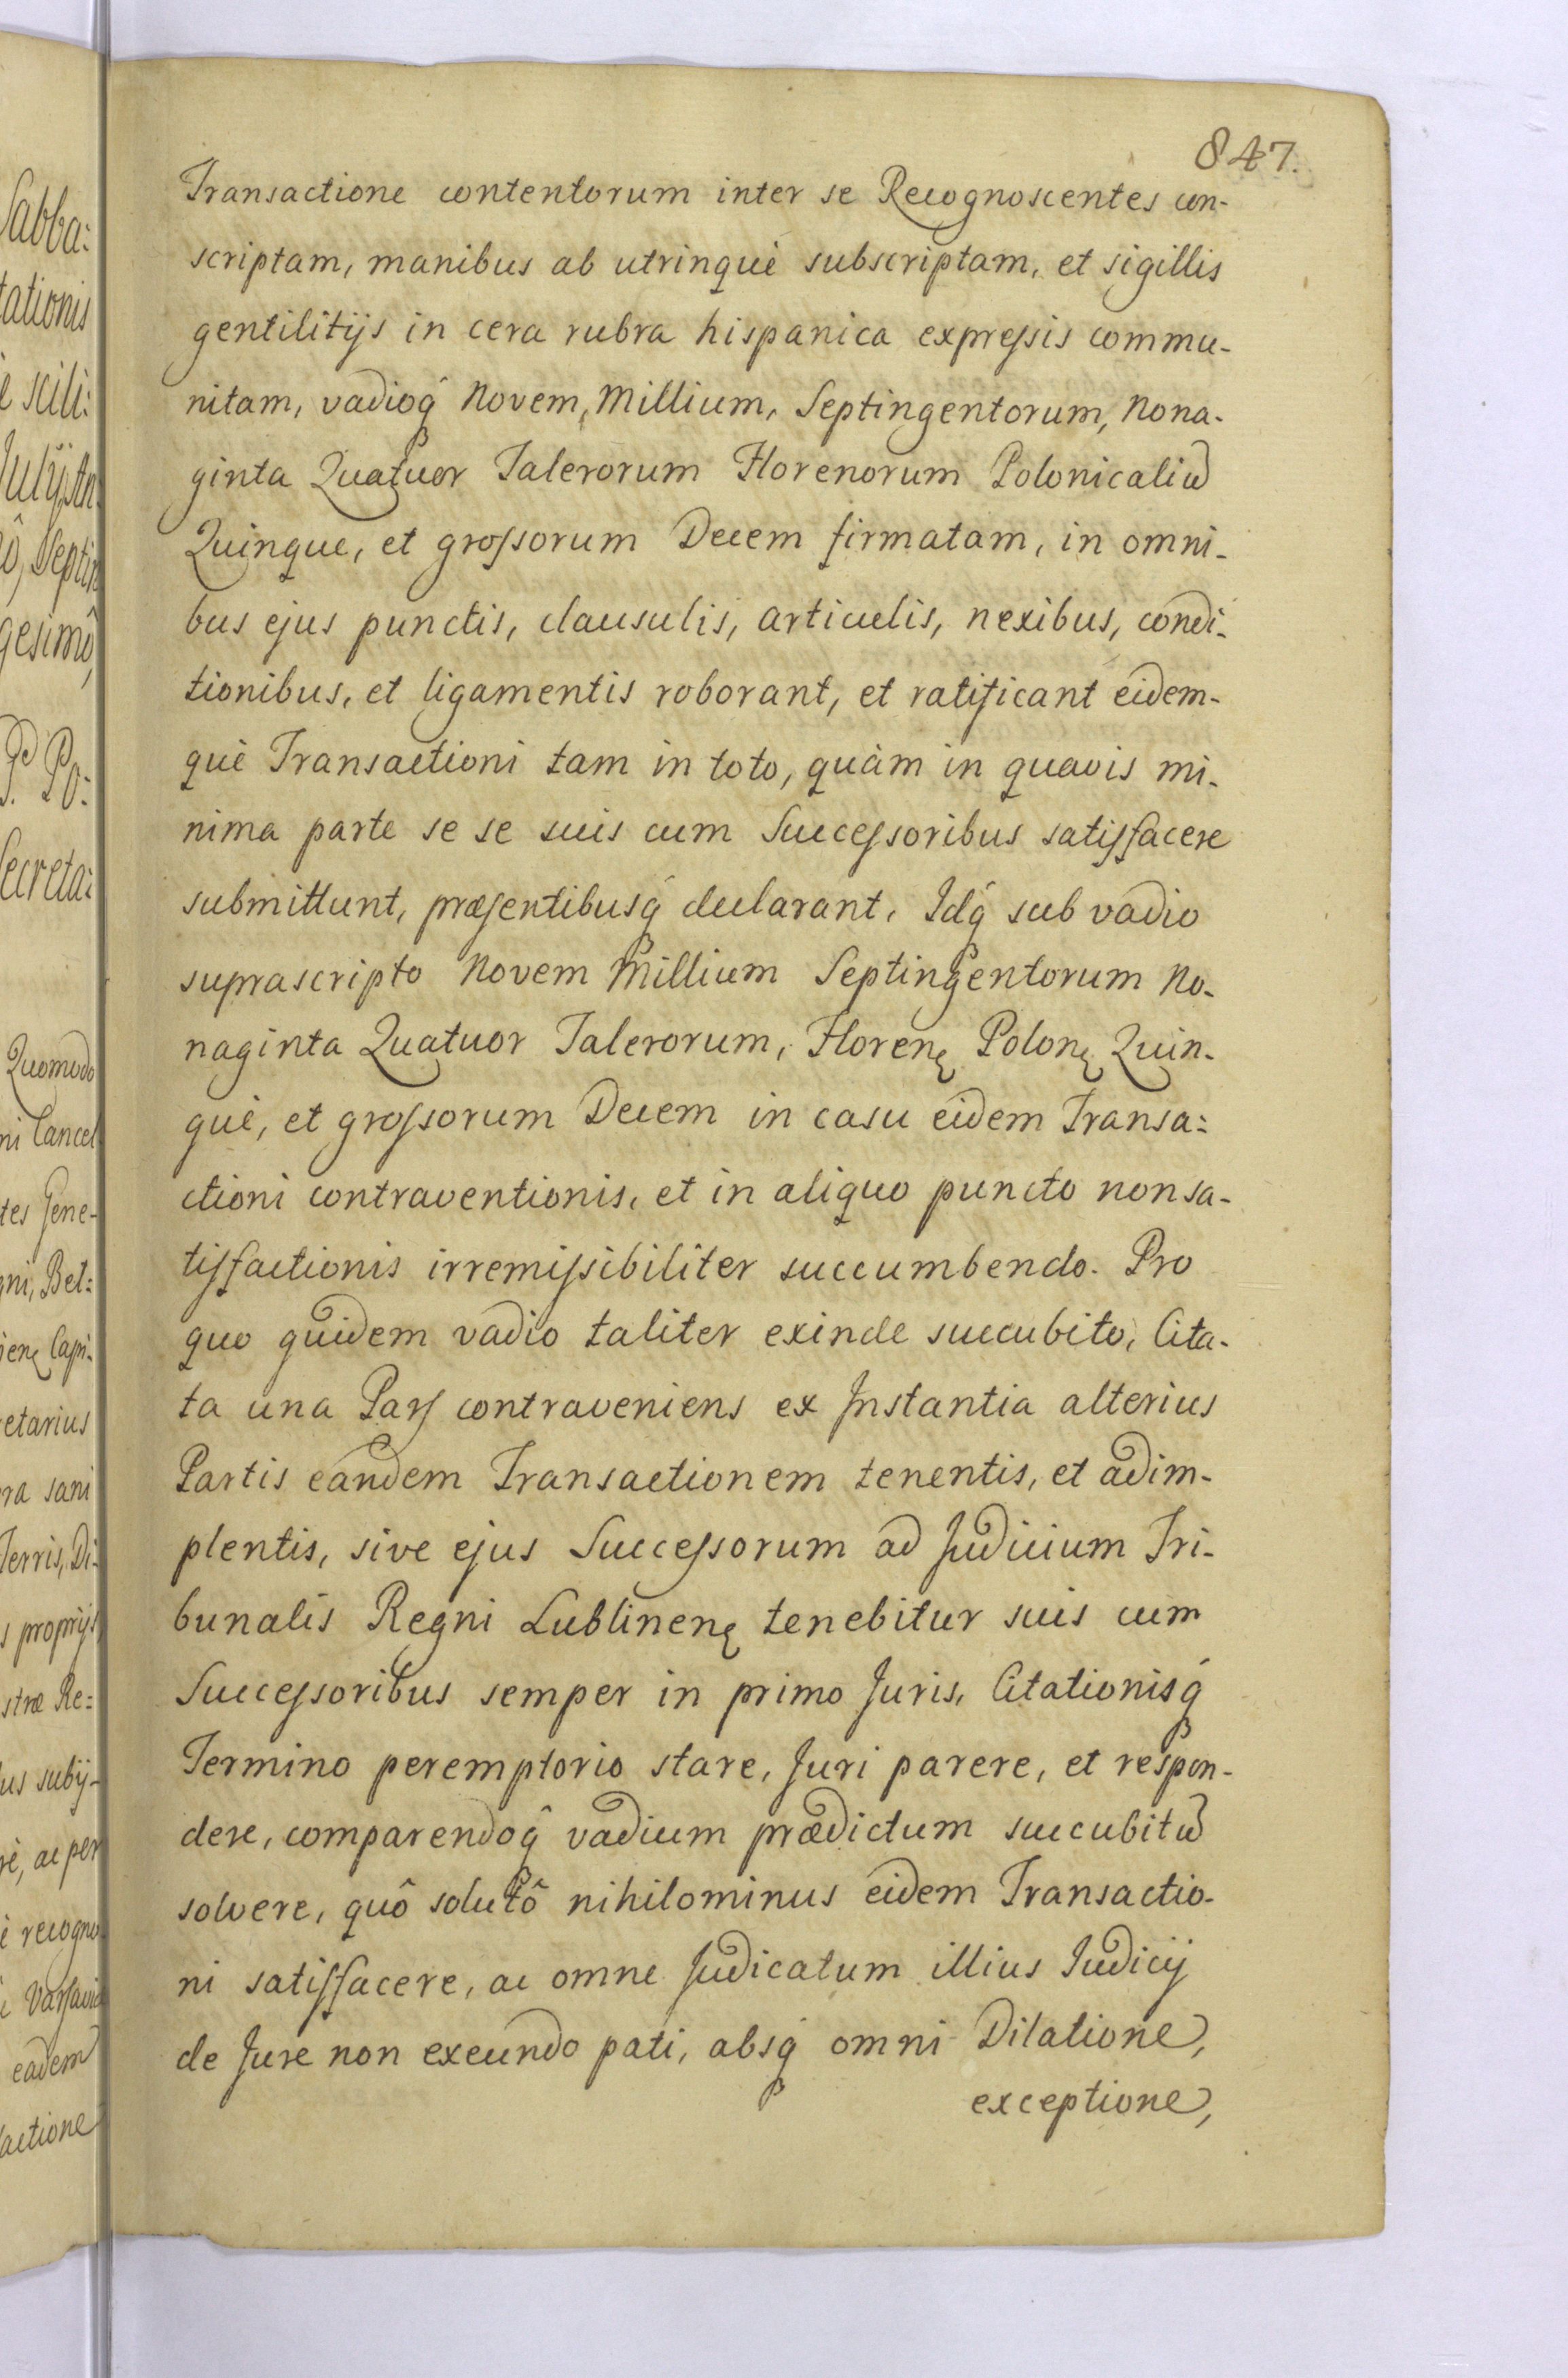 847.
Transactione contentorum inter se Recognoscentes con-
scriptam, manibus ab utrinquè subscriptam, et sigillis
gentilitijs in cera rubra hispanica expreſsis commu-
nitam, vadioq́ Novem, Millium, Septingentorum, Nona-
ginta Quatuor Talerorum Florenorum Polonicaliũ
Quinque, et groſsorum Decem firmatam, in omni-
bus ejus punctis, clausulis, articulis, nexibus, condi-
tionibus, et ligamentis roborant, et ratificant eidem-
què Transactioni tam in toto, quàm in quavis mi-
nima parte se se suis cum Succeſsoribus satisfacere
submittunt, præsentibusq́ declarant, Idq́ sub vadio
suprascripto Novem Millium Septingentorum No-
naginta Quatuor Talerorum, Florenę Polonę Quin-
què, et groſsorum Decem in casu eidem Transa=
ctioni contraventionis, et in aliquo puncto non sa-
tisfactionis irremiſsibiliter succumbendo. Pro
quo quidem vadio taliter exinde succubito, Cita-
ta una Pars contraveniens ex Instantia alterius
Partis eandem Transactionem tenentis, et adim-
plentis, sive ejus Succeſsorum ad Judicium Tri-
bunalis Regni Lublinenę tenebitur suis cum
Succeſsoribus semper in primo Juris, Citationisq́
Termino peremptorio stare, Juri parere, et respon-
dere, comparendoq̂ vadium prædictum succubitũ
solvere, quô solutô nihilominus eidem Transactio-
ni satisfacere, ac omne Judicatum illius Iudicij
de Jure non exeundo pati, absq́ omni Dilatione,
exceptione,
Sabba:
tationis
scili:
Julij, An
Septin
gesimô,
Po:
Secreta:
Quomodo
ni Cancel
tes Gene-
gni, Bet:
ienę Capi-
etarius
ra sani
Terris, Di-
s proprijs
stræ Re=
us subij-
rè, ac per
recogno
Varsavię
eadem
actione